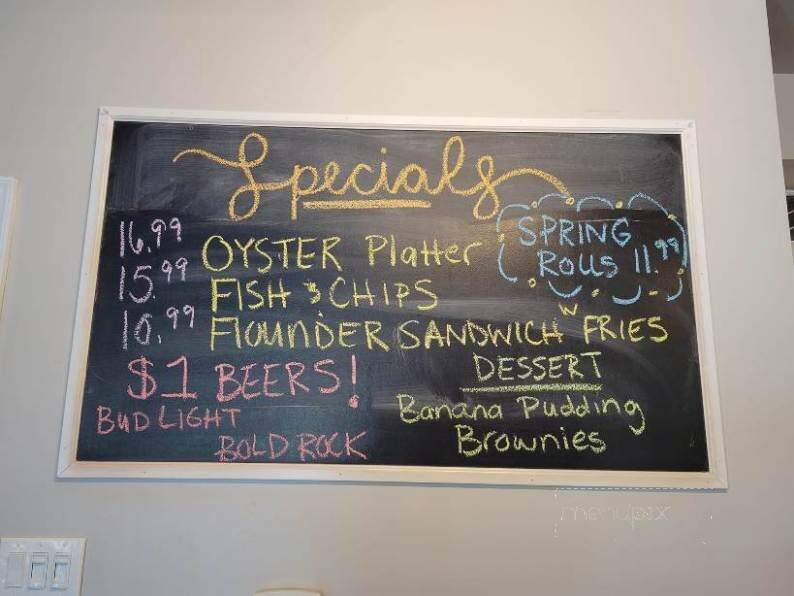 Specials
16.99 OYSTER Platter
15.99 FISH & CHIPS
SPRING
ROLLS 11.99
FLOUNDER SANDWICH W FRIES
$1 BEERS!
BUD LIGHT
BOLD ROCK
DESSERT
Banana Pudding
Brownies
menupix